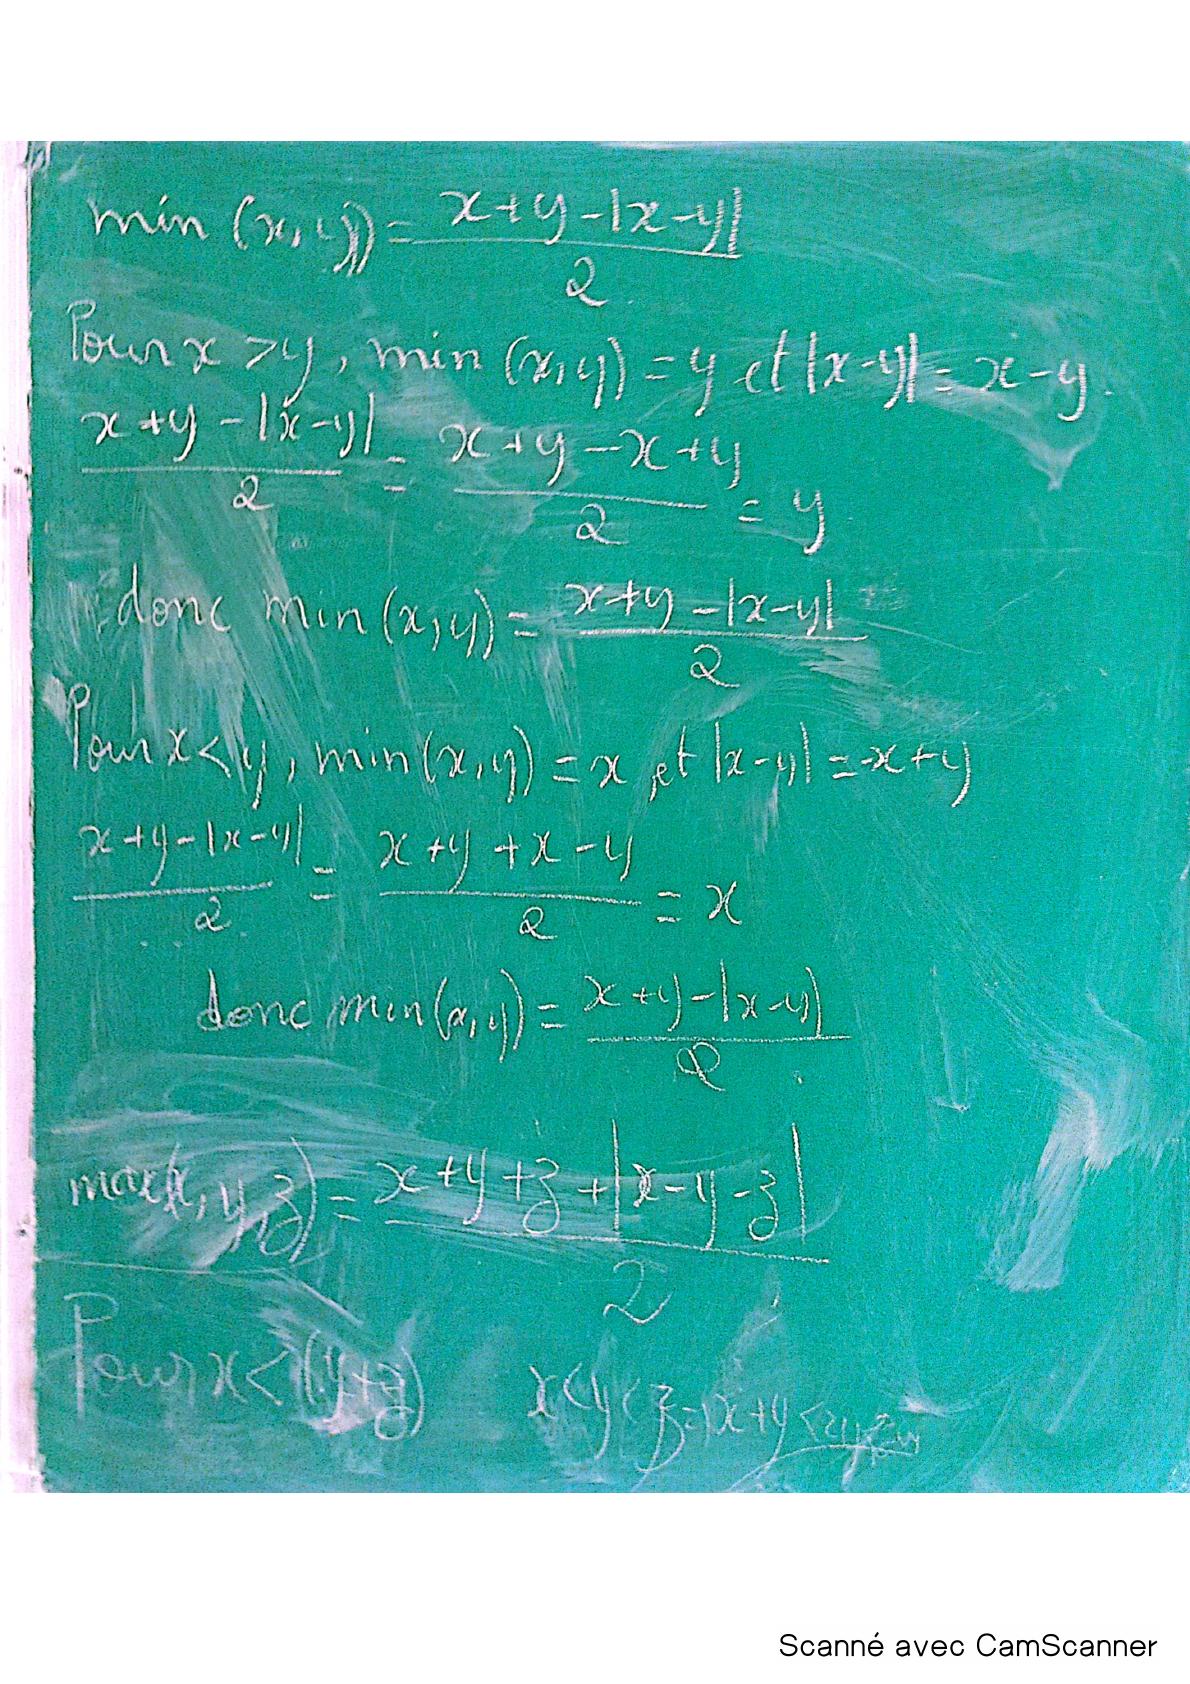 min (x, y) = x+y-|x-y| / 2
Pour x > y, min (x, y) = y et |x-y| = x-y.
x+y-|x-y| / 2 = x+y-x+y / 2 = y
donc min (x, y) = x+y-|x-y| / 2
Pour x < y, min(x, y) = x, et |x-y| = -x+y
x+y-|x-y| / 2 = x+y+x-y / 2 = x
donc min(x, y) = x+y-|x-y| / 2
max(x, y, z) = x+y+z+|x-y-z| / 2
Pour x < (y+z) x<y<z => x+y <
Scanné avec CamScanner